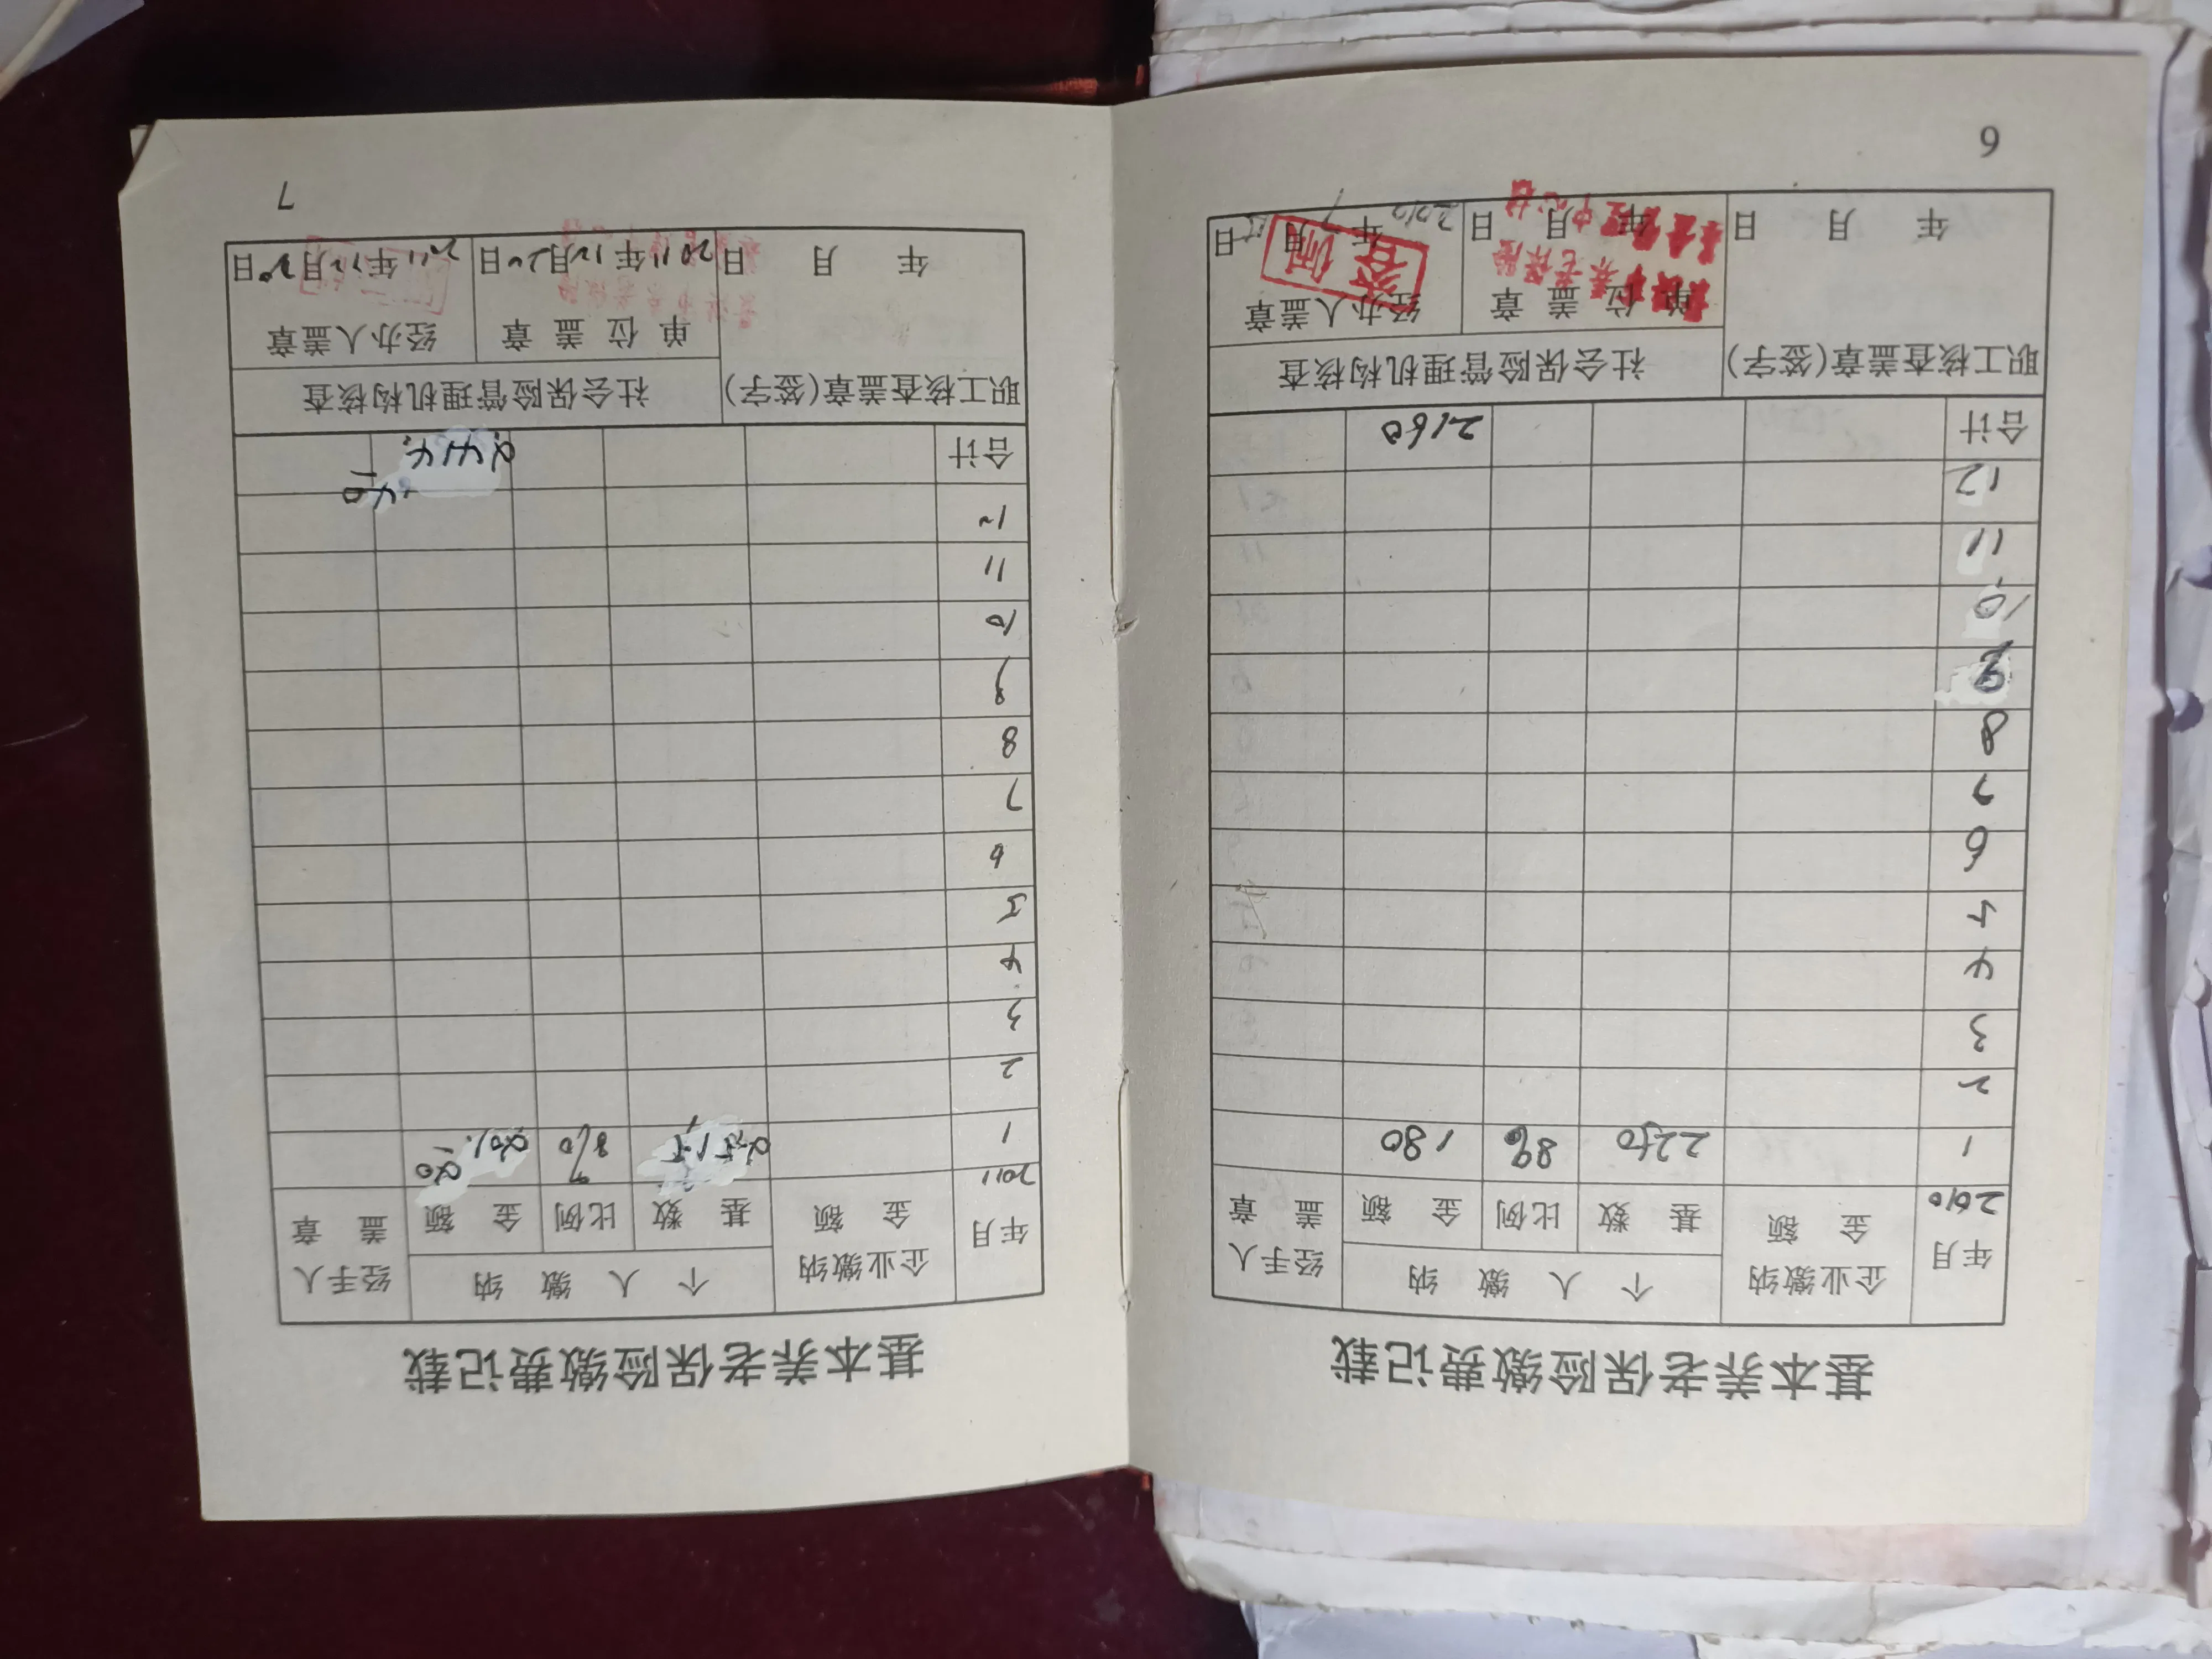 基本养老保险缴费记载
年月
企业缴纳
金 额
个 人 缴 纳
基 数
比例
金 额
经手人
盖 章
2010
1 2250 8% 180
2
3
4
5
6
7
8
9
10
11
12
合计 2160
职工核查盖章(签字)
社会保险管理机构核查
单 位 盖 章
经办人盖章
养老保险
中心
年 月 日
年 月 日
2010年7月 日
6
基本养老保险缴费记载
年月
企业缴纳
金 额
个 人 缴 纳
基 数
比例
金 额
经手人
盖 章
2011
1 2515 8% 201.20
2
3
4
5
6
7
8
9
10
11
12
合计 2414.40
职工核查盖章(签字)
社会保险管理机构核查
单 位 盖 章
经办人盖章
年 月 日
2011年12月20日
2011年12月20日
7